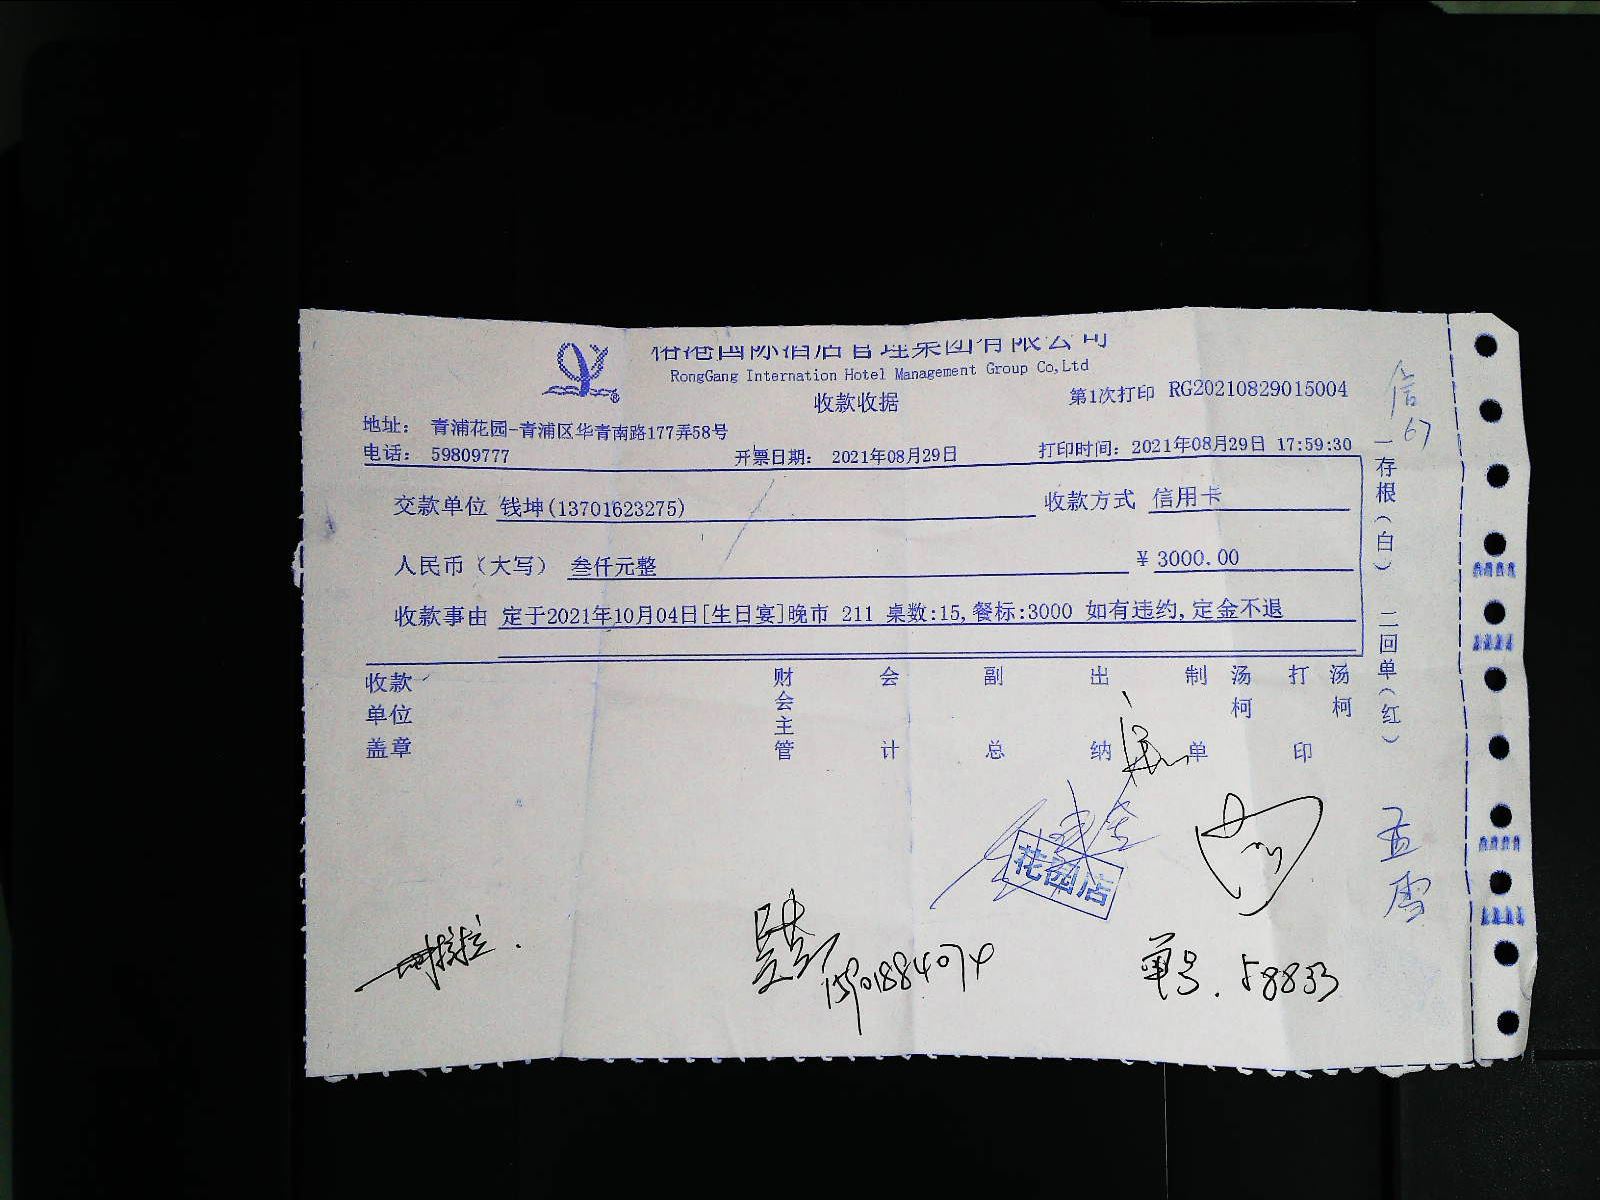 裕港国际酒店管理集团有限公司
RongGang Internation Hotel Management Group Co,Ltd
收款收据
第1次打印 RG20210829015004
地址: 青浦花园-青浦区华青南路177弄58号
电话: 59809777 开票日期: 2021年08月29日 打印时间: 2021年08月29日 17:59:30
交款单位 钱坤(13701623275) 收款方式 信用卡
人民币（大写） 叁仟元整 ¥ 3000.00
收款事由 定于2021年10月04日[生日宴]晚市 211 桌数:15,餐标:3000 如有违约,定金不退
收款单位盖章 财会主管 会计 副总 出纳 制单 汤柯 打印 汤柯
一存根（白） 二回单（红）
信67
花园店
孟雪
58833